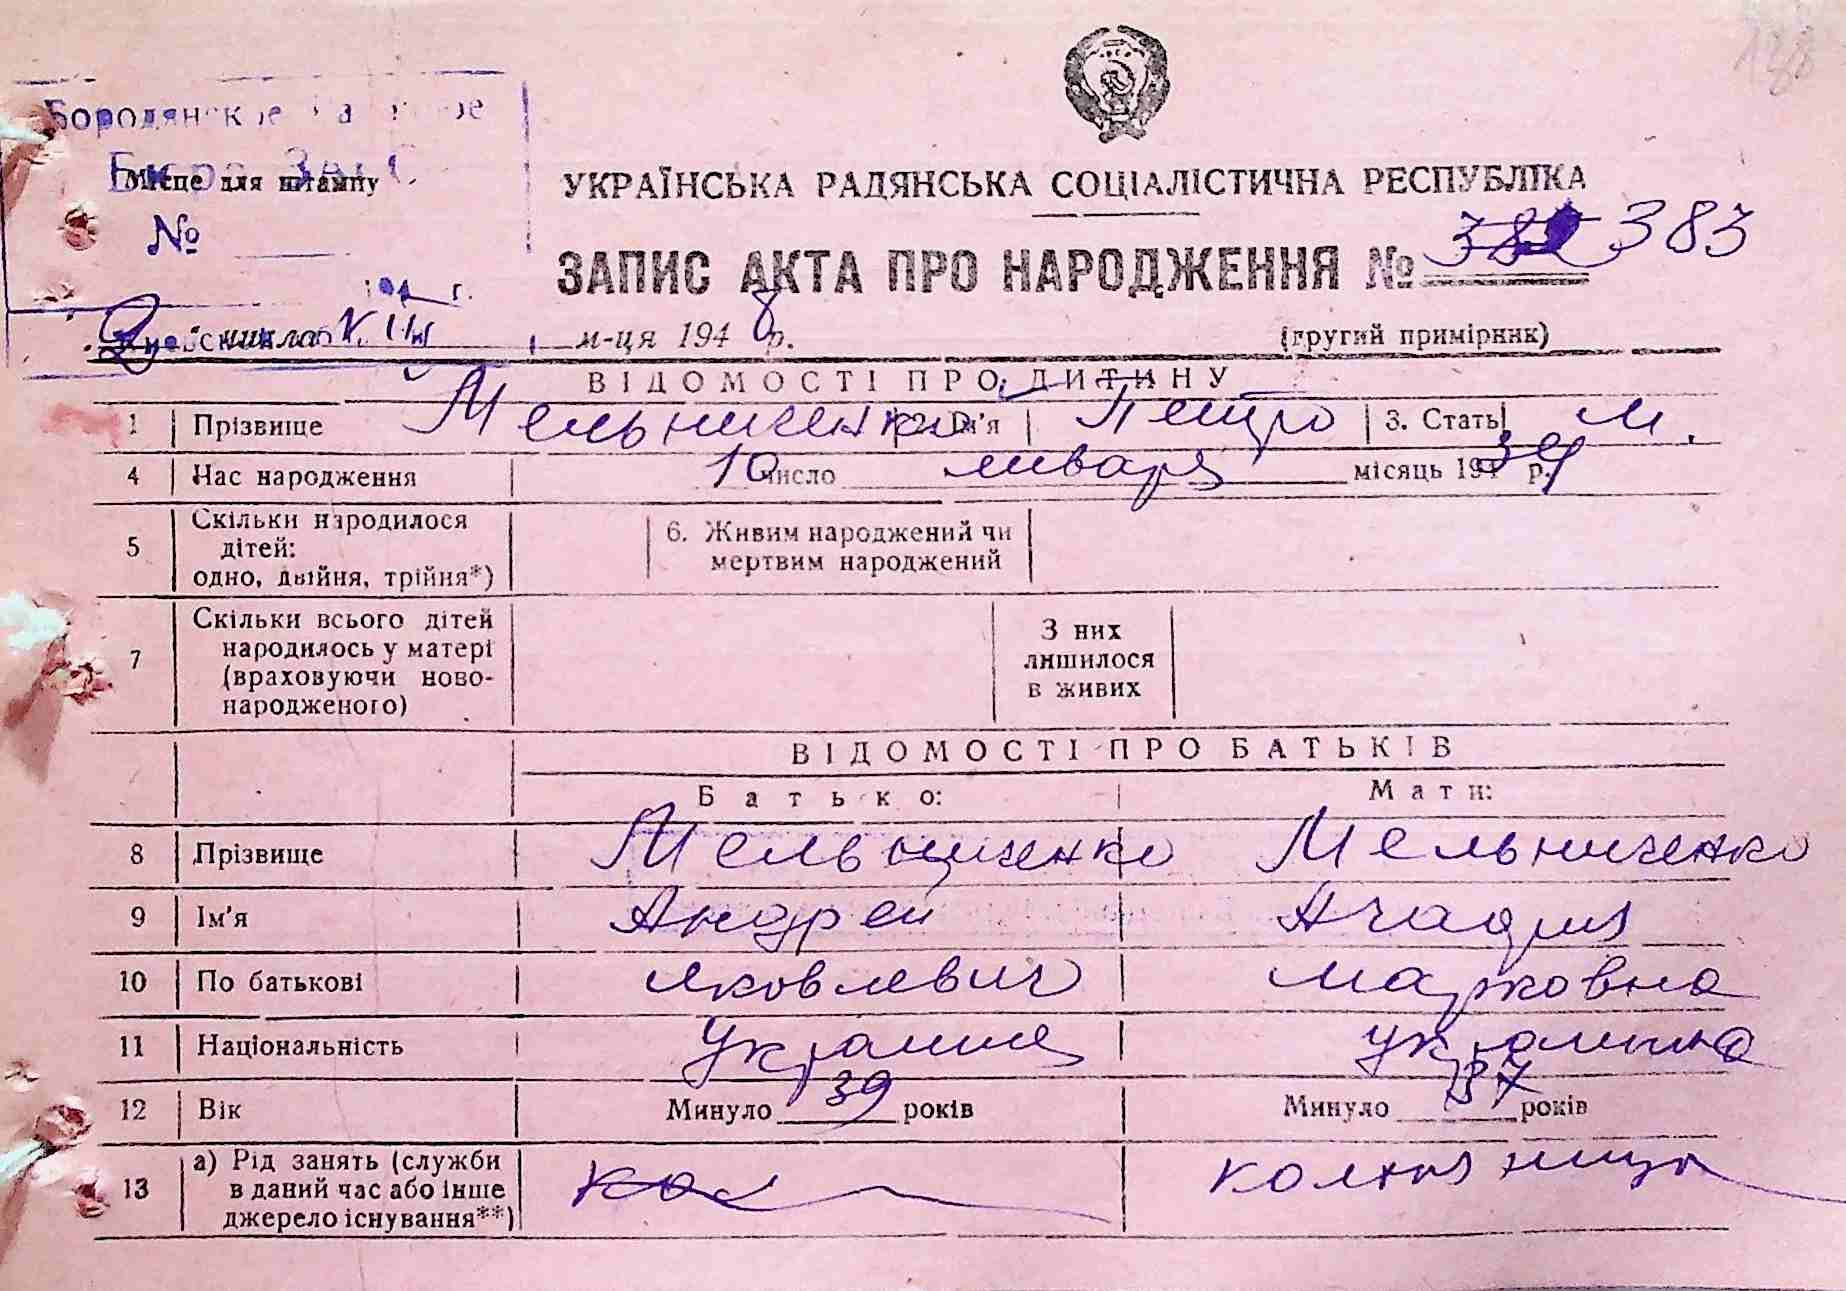 188
Бородянское
Бюро ЗАГС
Місце для штампу
№
194 г.
УКРАЇНСЬКА РАДЯНСЬКА СОЦІАЛІСТИЧНА РЕСПУБЛІКА
ЗАПИС АКТА ПРО НАРОДЖЕННЯ № 382 383
9 числа VIII м-ця 1948 р. (другий примірник)
ВІДОМОСТІ ПРО ДИТИНУ
1 Прізвище Мельниченко 2. Ім'я Петро 3. Стать м.
4 Час народження 10 число января місяць 1939 р.
5 Скільки народилося дітей: одно, двійня, трійня*) 6. Живим народжений чи мертвим народжений
7 Скільки всього дітей народилось у матері (враховуючи новонародженого) З них лишилося в живих
ВІДОМОСТІ ПРО БАТЬКІВ
Батько: Мати:
8 Прізвище Мельниченко Мельниченко
9 Ім'я Андрей
10 По батькові Яковлевич Марковна
11 Національність Украинец украинка
12 Вік Минуло 39 років Минуло 37 років
13 а) Рід занять (служби в даний час або інше джерело існування**) кол колхозница